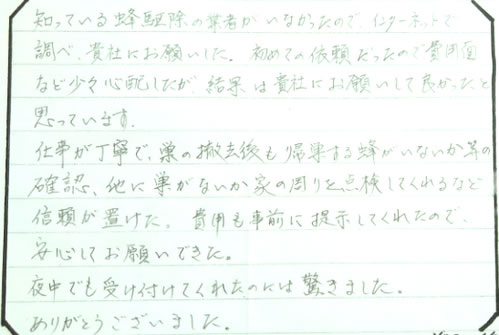 知っている蜂駆除の業者がいなかったので、インターネットで
調べ、貴社にお願いした。初めての依頼だったので費用面
など少々心配したが、結果は貴社にお願いして良かったと
思っています。
仕事が丁寧で、巣の撤去後も帰巣する蜂がいないか等の
確認、他に巣がないか家の周りを点検してくれるなど
信頼が置けた。費用も事前に提示してくれたので、
安心してお願いできた。
夜中でも受け付けてくれたのには驚きました。
ありがとうございました。